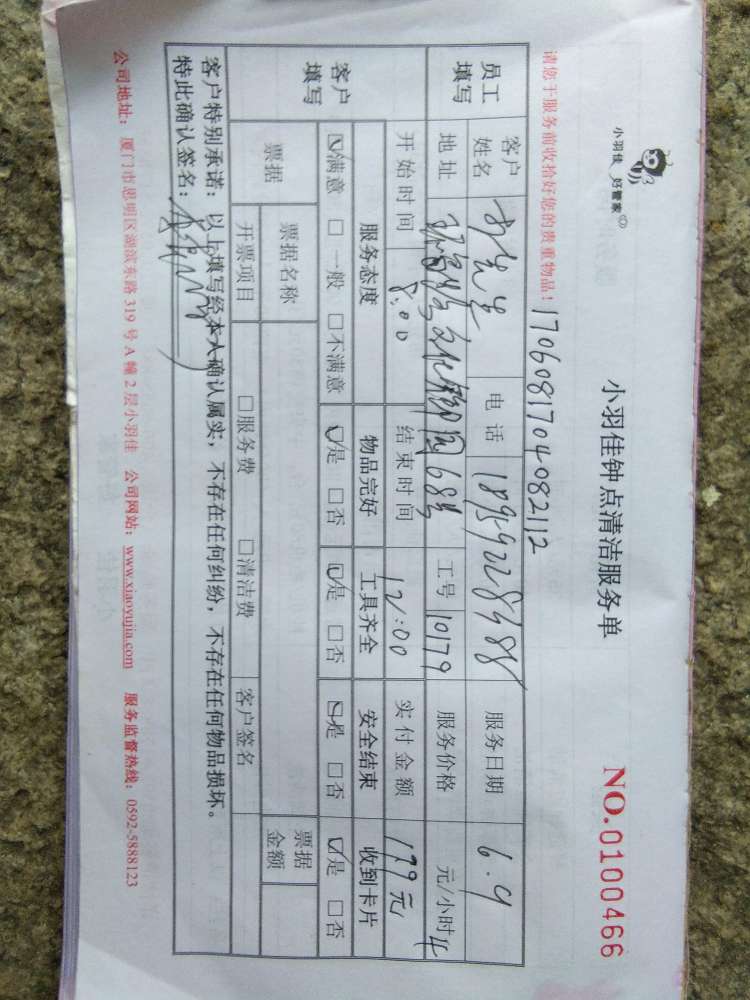 小羽佳 好管家
小羽佳钟点清洁服务单
NO.0100466
请您于服务前收拾好您的贵重物品！
1706081704082112
员工填写
客户姓名 先生 电话 服务日期 6.9
地址 68号 工号 10179 服务价格 元/小时 4
客户填写
开始时间 8:00 结束时间 12:00 实付金额 179元
服务态度 物品完好 工具齐全 安全结束 收到卡片
☑满意 □一般 □不满意 ☑是 □否 ☑是 □否 ☑是 □否 ☑是 □否
票据 票据名称 票据金额
开票项目 □服务费 □清洁费 客户签名
客户特别承诺：以上填写经本人确认属实，不存在任何纠纷，不存在任何物品损坏。
特此确认签名：
公司地址：厦门市思明区湖滨东路 319 号 A 幢 2 层小羽佳 公司网站：www.xiaoyujia.com 服务监督热线：0592-5888123